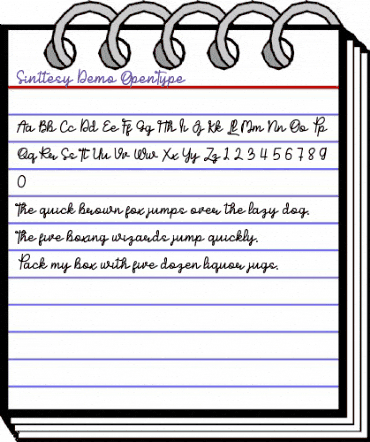 Sinttesy Demo OpenType
Aa Bb Cc Dd Ee Ff Gg Hh Ii Jj Kk Ll Mm Nn Oo Pp
Qq Rr Ss Tt Uu Vv Ww Xx Yy Zz 1 2 3 4 5 6 7 8 9
0
The quick brown fox jumps over the lazy dog.
The five boxing wizards jump quickly.
Pack my box with five dozen liquor jugs.